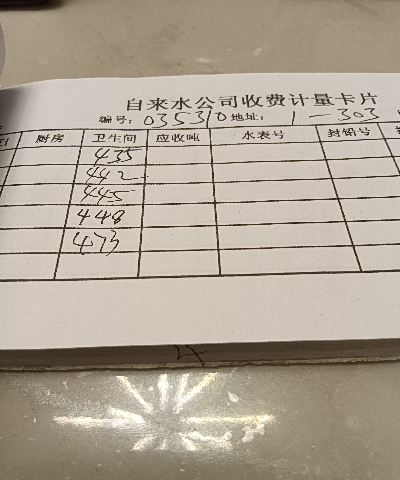 自来水公司收费计量卡片
编号：035310 地址：1-303
厨房 卫生间 应收吨 水表号 封铅号
435
442
445
448
473